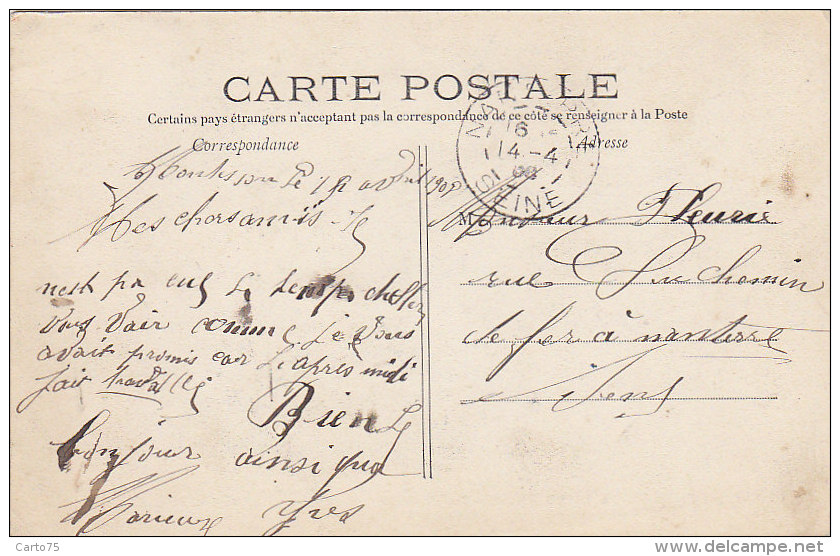 CARTE POSTALE
Certains pays étrangers n'acceptant pas la correspondance de ce côté se renseigner à la Poste
Correspondance
Adresse
16
14 -4
SEINE
le 12 avril 190
Mes chers amis Je
n'est pa eus le temps
vous voir comme je vous
avait promis car l'après midi
fait
Bien le
bonjour ainsi qua
Yves
Monsieur Fleurie
rue du chemin
de fer à nanterre
Carto75
www.delcampe.net